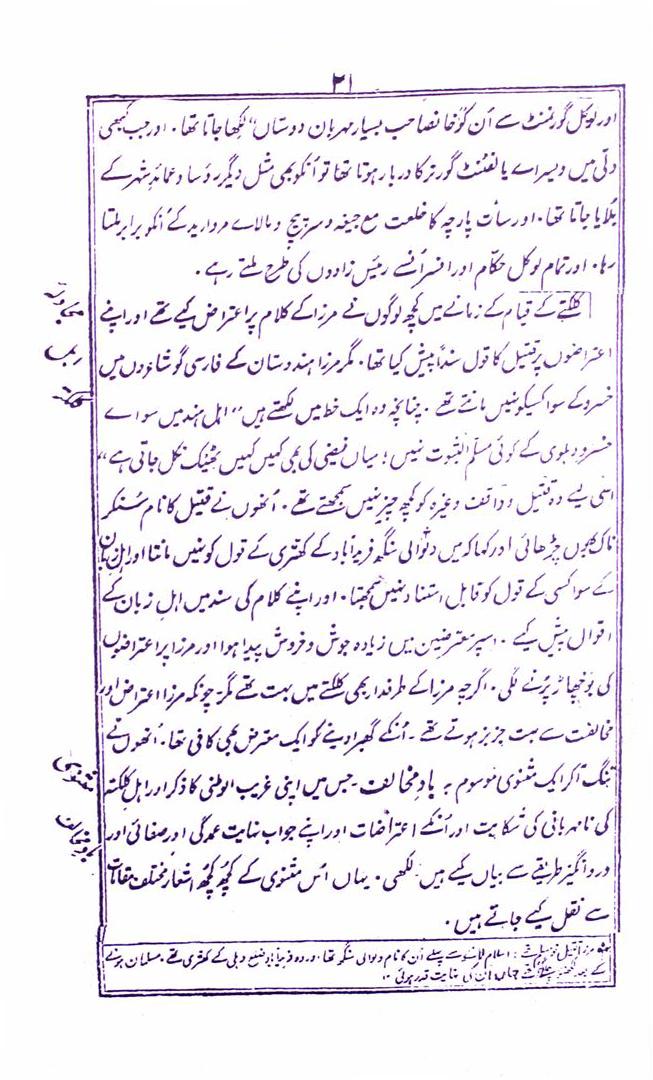 ۲۱
اور لوکل گورنمنٹ سے اُن کو خانصاحب بسیار مہربان دوستاں" لکھا جاتا تھا۔ اور جب کبھی
دلّی میں ویسراے یا لفٹنٹ گورنر کا دربار ہوتا تھا تو اُنکو بھی مثل دیگر رؤسا و عمائدِ شہر کے
بُلایا جاتا تھا۔ اور سات پارچہ کا خلعت مع جیغہ و سرپیچ و مالاے مروارید کے اُنکو برابر ملتا
رہا۔ اور تمام لوکل حکّام اور افسر اُنسے رئیس زادوں کی طرح ملتے رہے۔
کلکتے کے قیام کے زمانے میں کچھ لوگوں نے مرزا کے کلام پر اعتراض کیے تھے اور اپنے
اعتراضوں پر قتیل کا قول سنداً پیش کیا تھا۔ مگر مرزا ہندوستان کے فارسی گو شاعروں میں
خسرو کے سوا کسیکو نہیں مانتے تھے۔ چنانچہ وہ ایک خط میں لکھتے ہیں "اہل ہند میں سواے
خسرو دہلوی کے کوئی مسلّم الثبوت نہیں؛ میاں فیضی کی بھی کہیں کہیں ٹھیک نکل جاتی ہے"
اسی لیے وہ قتیل و واقف وغیرہ کو کچھ چیز نہیں سمجھتے تھے۔ اُنھوں نے قتیل کا نام سُنکر
ناک بھوں چڑھائی اور کہا کہ میں دلوالی سنگھ فریدآباد کے کھتری کے قول کو نہیں مانتا اور اہلِ زبان
کے سوا کسی کے قول کو قابل استناد نہیں سمجھتا۔ اور اپنے کلام کی سند میں اہلِ زبان کے
اقوال پیش کیے۔ اسپر معترضین میں زیادہ جوش و خروش پیدا ہوا اور مرزا پر اعتراضوں
کی بوچھاڑ پڑنے لگی۔ اگرچہ مرزا کے طرفدار بھی کلکتے میں بہت تھے مگر چونکہ مرزا اعتراض اور
مخالفت سے بہت جزبز ہوتے تھے۔ اُنکے گھبرا دینے کو ایک معترض بھی کافی تھا۔ اُنھوں نے
تنگ آکر ایک مثنوی موسوم بہ بادِ مخالف۔ جس میں اپنی غریب الوطنی کا ذکر اور اہلِ کلکتہ
کی نامہربانی کی شکایت اور اُنکے اعتراضات اور اپنے جواب نہایت عمدگی اور صفائی اور
درد انگیز طریقے سے بیان کیے ہیں۔ لکھی۔ یہاں اُس مثنوی کے کچھ کچھ اشعار مختلف مقامات
سے نقل کیے جاتے ہیں۔
کلکتہ
مثنوی
باد مخالف
مرزا قتیل اسلام لانے سے پہلے اُن کا نام دلوالی سنگھ تھا۔ اور وہ فریدآباد ضلع دہلی کے کھتری تھے۔ مسلمان ہونے
کے بعد لکھنؤ جہاں اُن کی نہایت قدر ہوئی